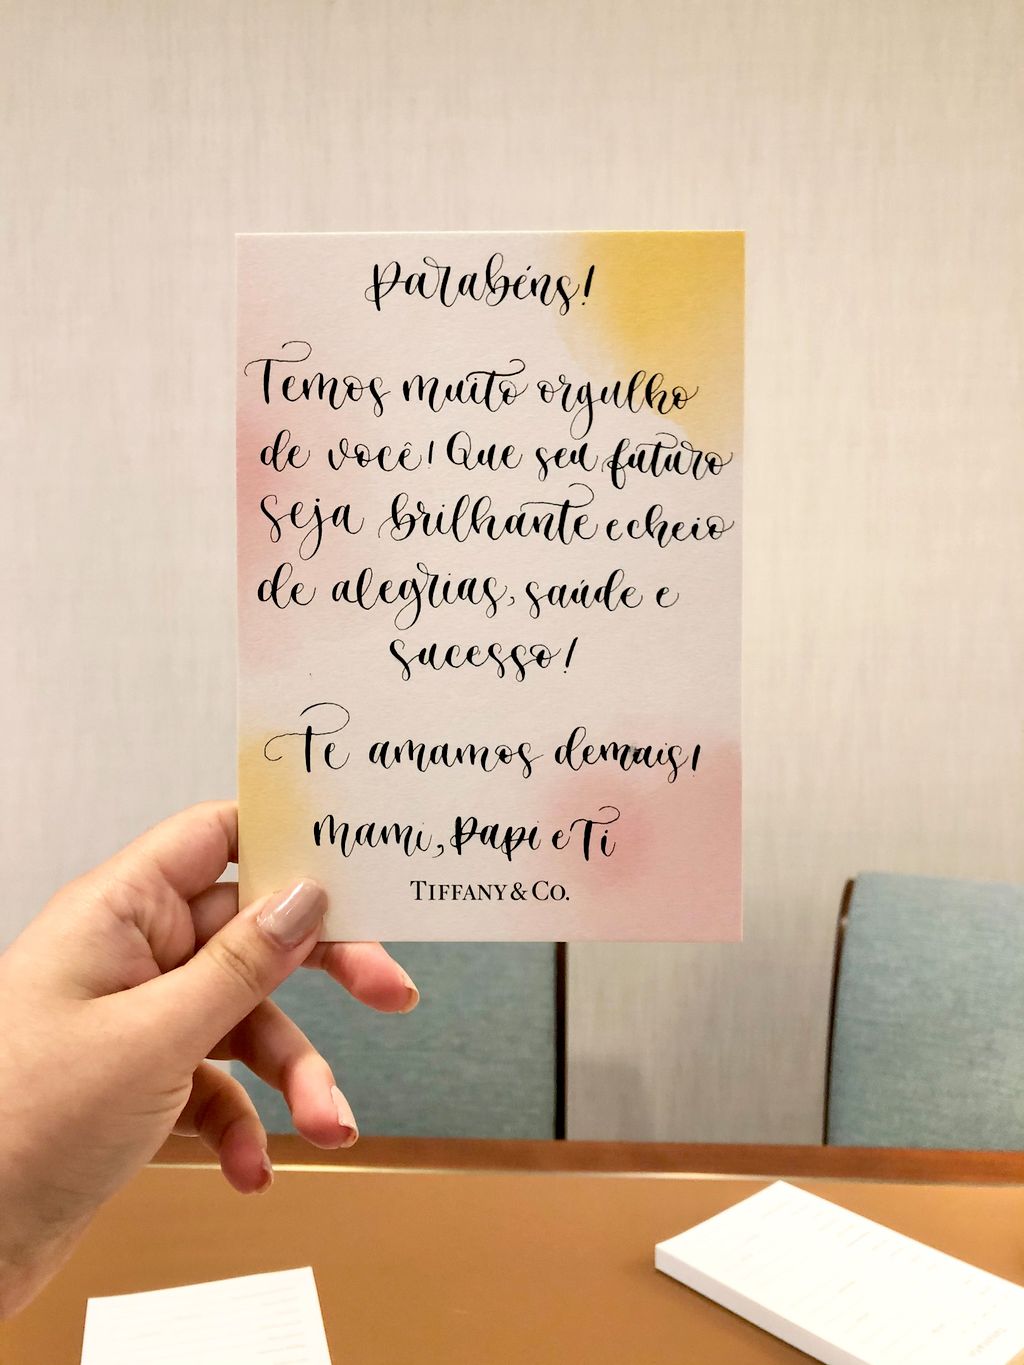 Parabéns!
Temos muito orgulho
de você! Que seu futuro
seja brilhante e cheio
de alegrias, saúde e
sucesso!
Te amamos demais!
Mami, Papi e Ti
TIFFANY & CO.